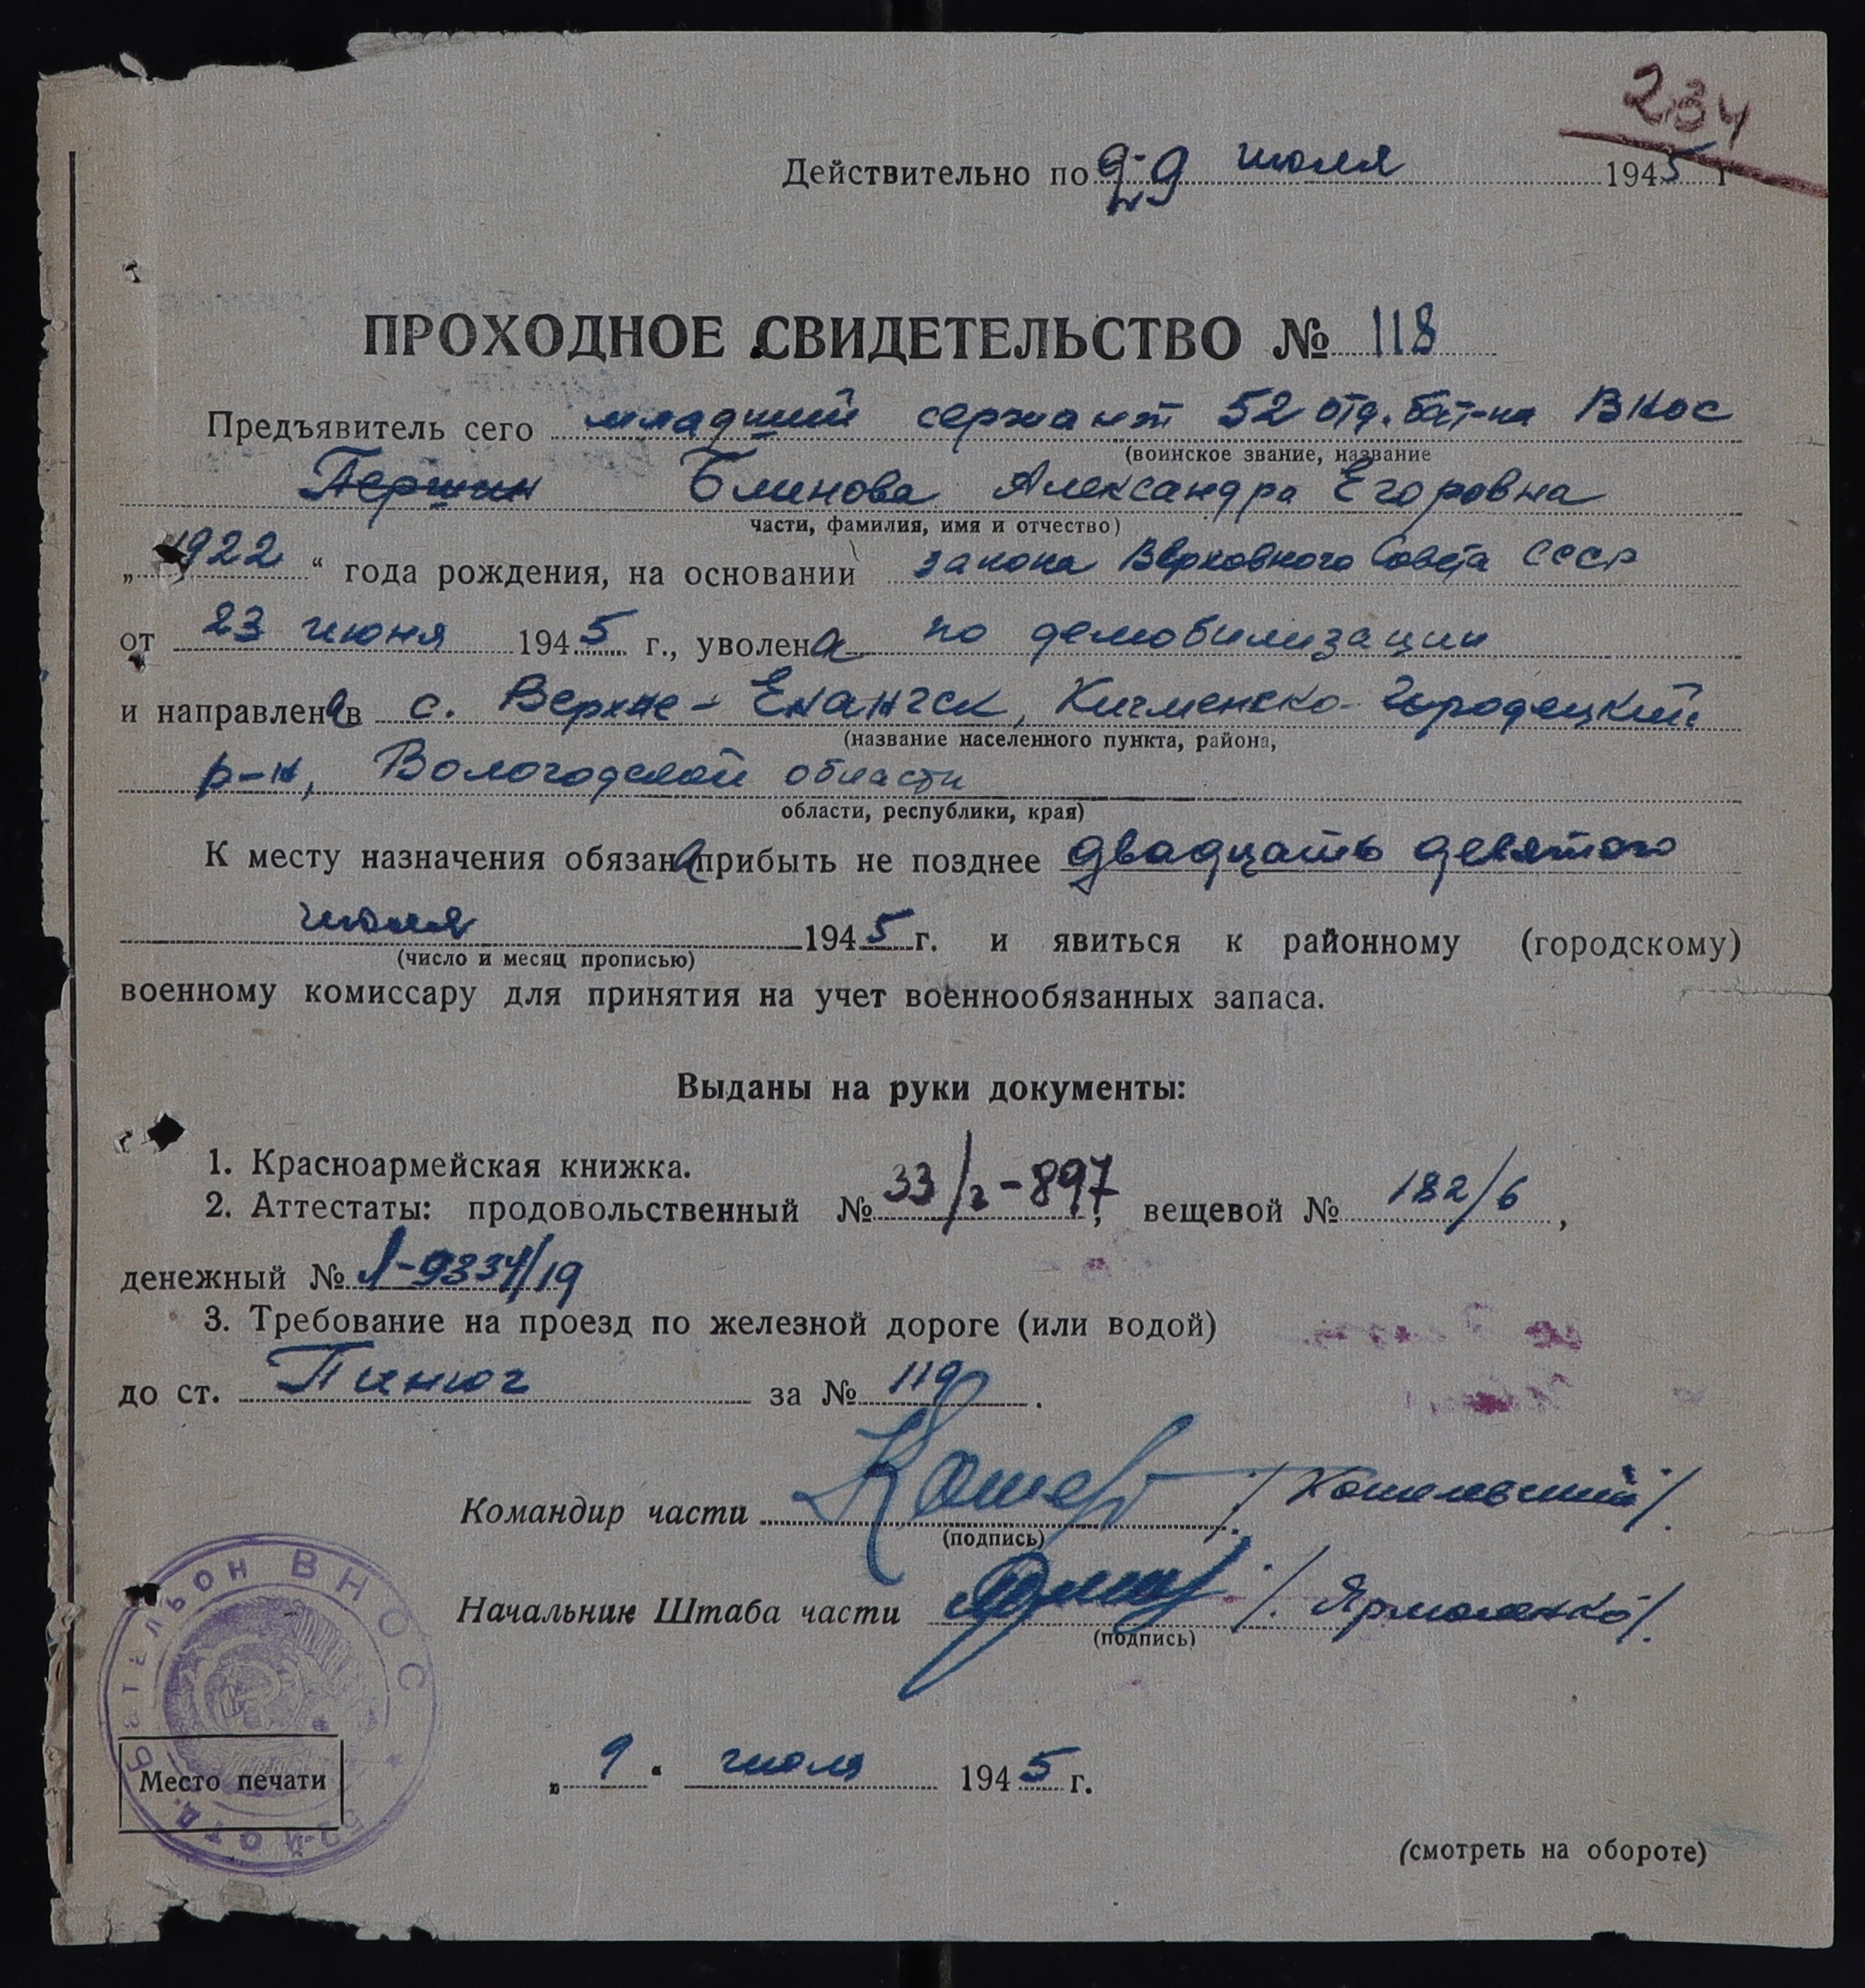 234
Действительно по 29 июля 1945 г
ПРОХОДНОЕ СВИДЕТЕЛЬСТВО № 118
Предъявитель сего младший сержант 52 отд. бат-на ВНОС
(воинское звание, название
Першин Блинова Александра Егоровна
части, фамилия, имя и отчество)
„1922“ года рождения, на основании закона Верховного Совета СССР
от 23 июня 1945 г., уволена по демобилизации
и направлена в с. Верхне-Ентангск, Кичменско-Городецкий
(название населенного пункта, района,
р-н, Вологодской области
области, республики, края)
К месту назначения обязана прибыть не позднее двадцать девятого
июля 1945 г. и явиться к районному (городскому)
(число и месяц прописью)
военному комиссару для принятия на учет военнообязанных запаса.
Выданы на руки документы:
1. Красноармейская книжка.
2. Аттестаты: продовольственный № 33/2-897, вещевой № 182/6,
денежный № Л-9334/19
3. Требование на проезд по железной дороге (или водой)
до ст. Пинюг за № 119.
Командир части /Кошелевский/.
(подпись)
Начальник Штаба части /Ярмоленко/.
(подпись)
52-й ОТД. БАТАЛЬОН ВНОС
Место печати
„9“ июля 1945 г.
(смотреть на обороте)